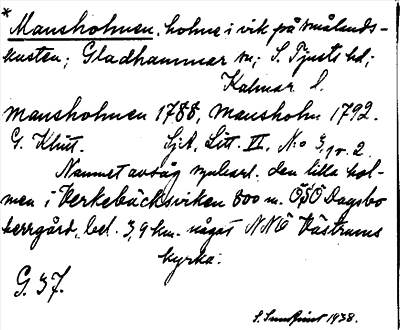 * Mansholmen, holme i vik på smålands-
kusten; Gladhammar sn; S. Tjusts hd;
Kalmar l.
Mansholmen 1788, Mansholm 1792.
G. Klint. SjA, Litt. II, No 3, 1 o. 2.
Namnet avsåg den lilla hol-
men i Verkebäcksviken 800 m. ÖSÖ Dagsbo
herrgård, bel. 3,9 km. något NNÖ Västrums
kyrka.
G. 37.
S. 1938.